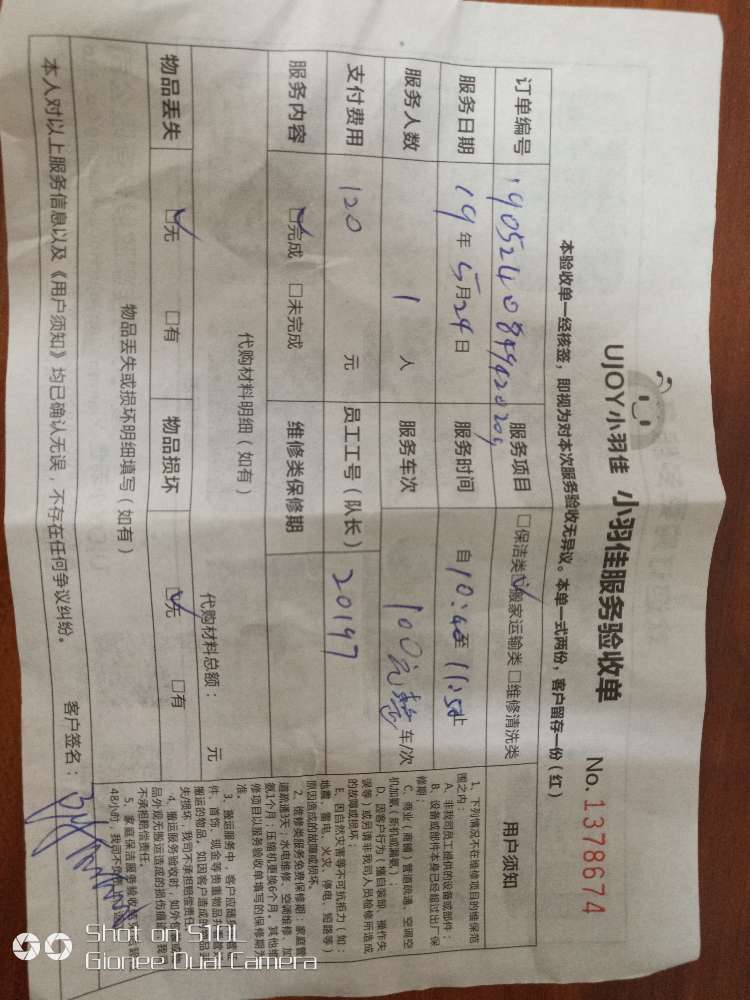 UJOY小羽佳 小羽佳服务验收单 No.1378674
本验收单一经核签，即视为对本次服务验收无异议。本单一式两份，客户留存一份（红）
订单编号 服务项目 □保洁类 ☑搬家运输类 □维修清洗类
服务日期 19年5月24日 服务时间 自10:40至11:50止
服务人数 1人 服务车次 100元整 车/次
支付费用 120元 员工工号（队长） 20197
服务内容 ☑完成 □未完成 维修类保修期
代购材料明细（如有） 代购材料总额： 元
物品丢失 ☑无 □有 物品损坏 ☑无 □有
物品丢失或损坏明细填写（如有）
本人对以上服务信息以及《用户须知》均已确认无误，不存在任何争议纠纷。 客户签名：
用户须知
1、下列情况不在维修项目的维保范
围之内：
A、非我司员工维修的设备或部件；
B、设备或部件本身已经超过出厂保
修期；
C、商业（商铺）管道疏通、空调空
机加氟（新机或漏氟）；
D、因客户行为（擅自装卸、操作失
误等）或另请非我司人员检修所造成
的故障或损坏；
E、因自然灾害等不可抗拒力（如：
地震、雷电、火灾、停电、短路等）
原因造成的故障或损坏。
2、维修类服务免费保修期：家庭管
道疏通3天；水电维修、空调维修、加
氨1个月；压缩机更换6个月，其他维
修项目以服务验收单填写的保修期为
准。
3、搬运服务中，客户应随身
件、首饰、现金等贵重物品
搬运的物品，如因客户造成的
失/损坏，我司不承担赔偿责任
4、搬运服务验收时，如外包
品外观无搬运造成的损伤痕迹，我
不承担赔偿责任。
5、家庭保洁服务验收
48小时，我司不负
Shot on STOL
Gionee Dual Camera